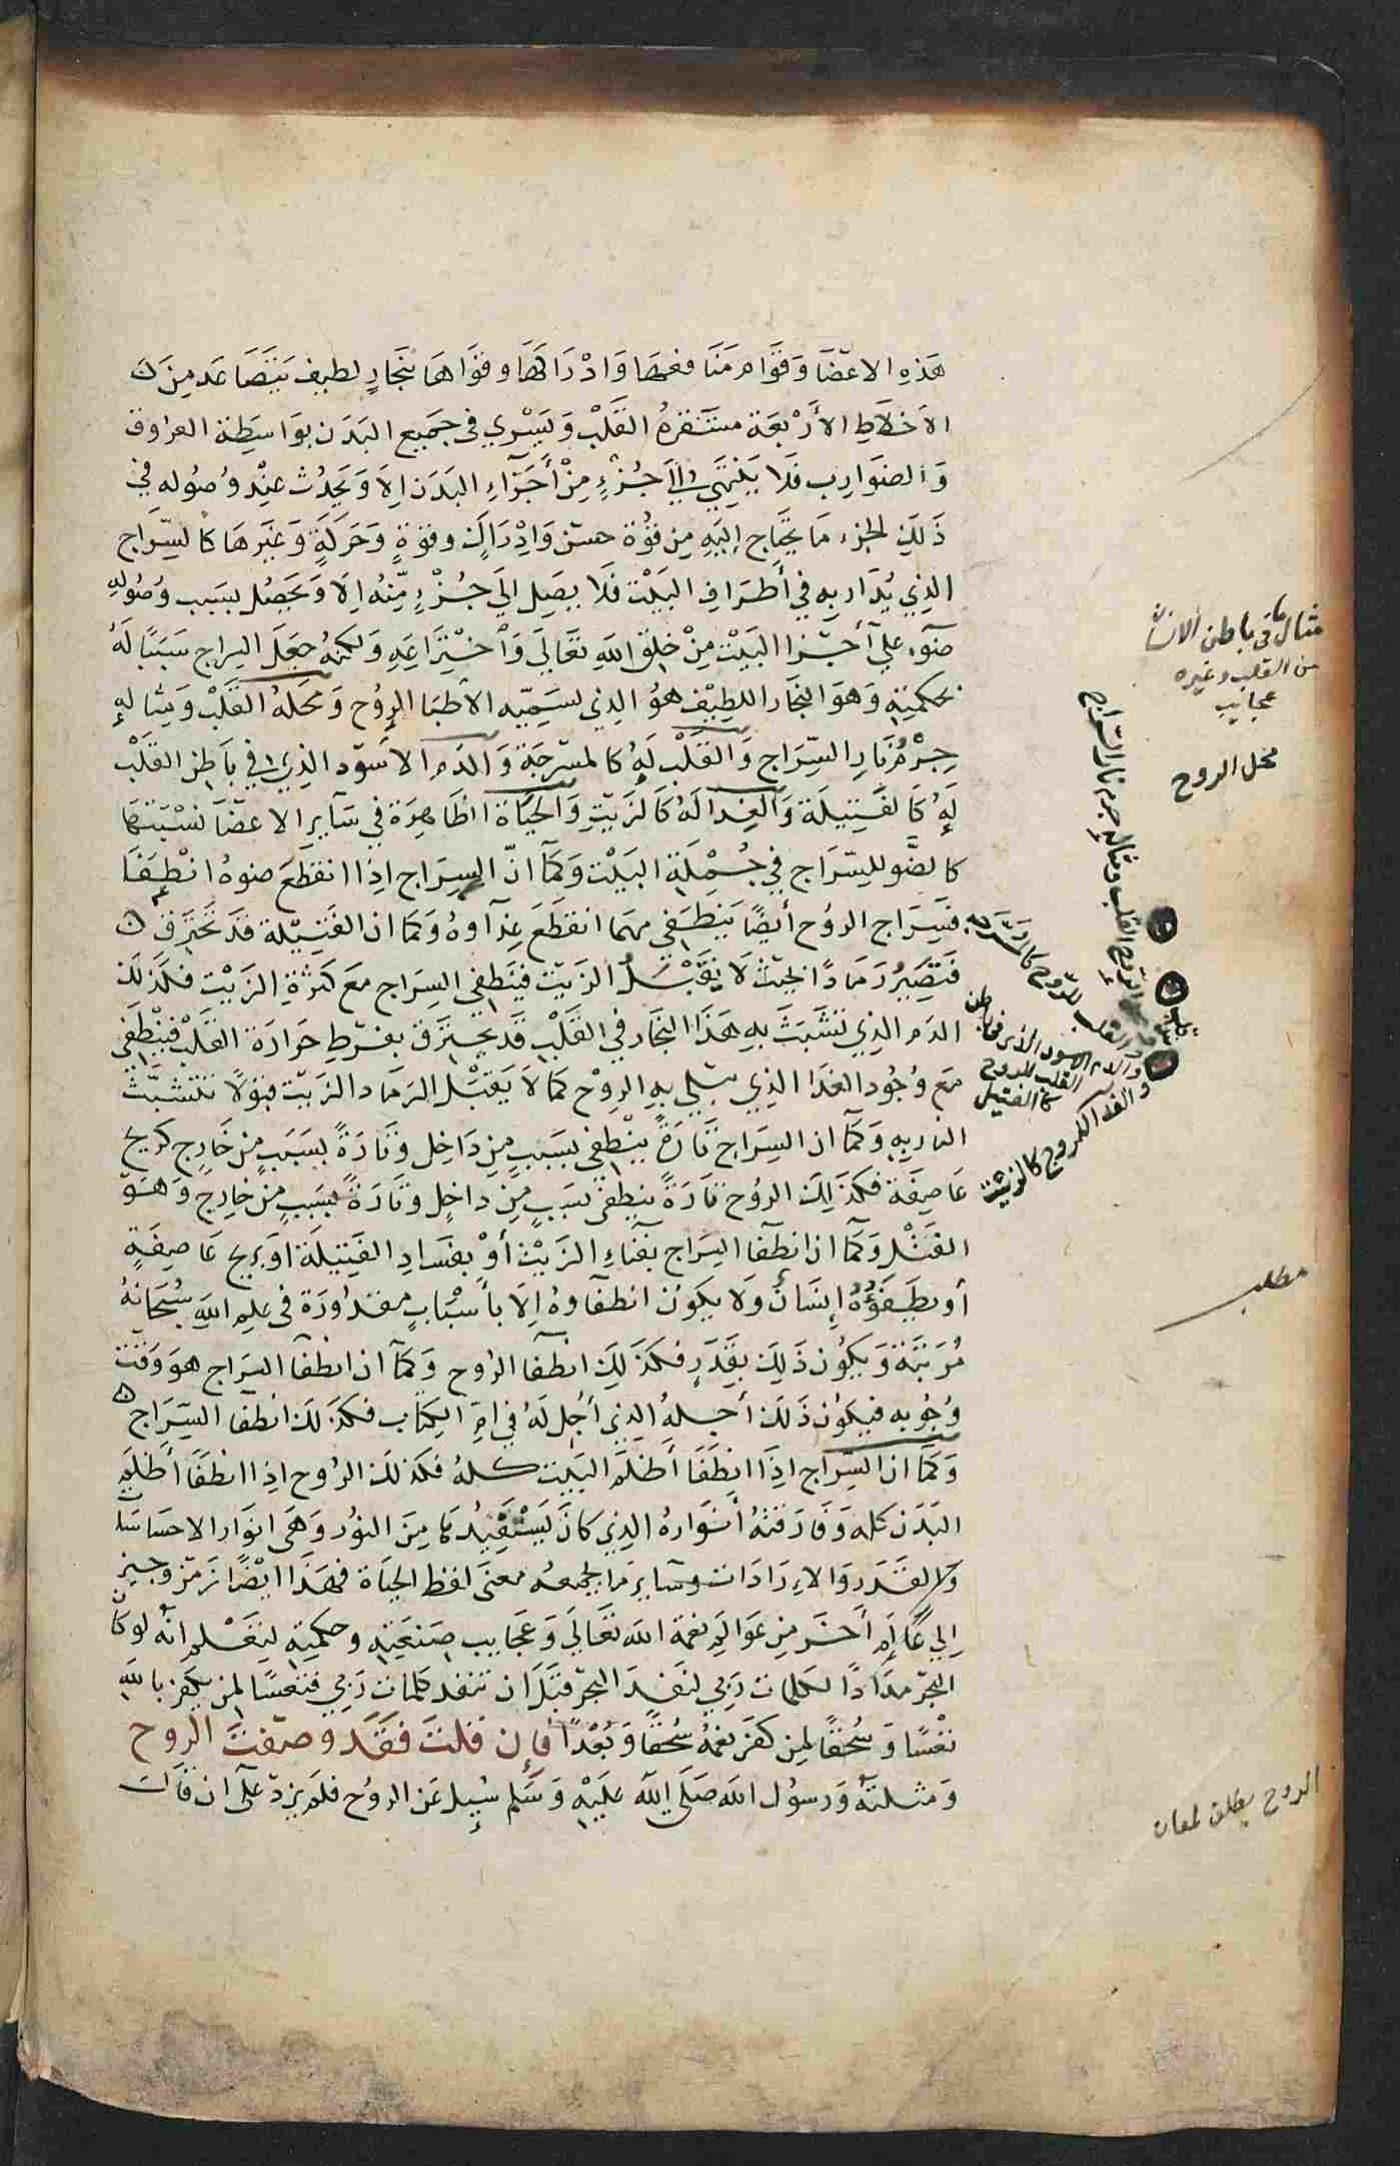 هَذِهِ الاعضَا وَقَوَامِ مَنَافعهَا وَادْرَاكهَا وقوَاهَا بُخَارٍ لطيف يَتَصَاعَد مِنَ
الاَخلَاطِ الأَرْبَعَة مستَقرهُ القَلبْ وَيَسْرِي في جَمِيعِ البَدَن بوَاسِطِة العروق
وَالضوَارِب فَلَا يَنْتهَي اِليَ جُزءٍ مِنْ أَجزَآءِ البَدَن اِلاَ وَيَحدُث عِنْد وُصُوله في
ذَلِكَ الجزء مَا يحتَاج إليَهِ مِن قوُة حسّ وَادِرَاكٍ وقوةٍ وَحَركَةٍ وَغيَرهَا كالسِّرَاج
الذِي يُدَار بِهِ في أَطرَافِ البَيْت فَلَا يصَيِل اليَ جُزْءٍ مِّنِهُ اِلَا وَيحَصُل بسَبب وُصُولهِ
ضَوء عليَ أَجْزا البَيْت مِنْ خلق اللهِ تعَاليَ وَاخْتِرَاعِهِ وَلكنهُ جعَلَ السِراج سَبَبًا لَهُ
بحكمتِهِ وَهوَ البخَار اللطِيْف هوُ الذِي يسَمِيّه الأطبَا الروُح وَمحَلهُ القَلبْ وَمِثَالهِ
جِرْمُ نَارِ السِّرَاج وَالقَلبْ لَهُ كالمسْرجَة وَالدَم الاسَوَد الذِي في بَاطِن القَلْب
لَهُ كَالفَتِيلَة وَالغِذا لَهُ كَالزَيتِ وَالحَيَاة الظَاهِرَة في سَآيرِ الاعضَا نسْبَتهَا
كالضَّو للسِّرَاج في جُمْلَةِ البَيْت وَكمَا انّ السِرَاج اِذِا انقطَعَ ضوهُ انْطفَا
فسِرَاج الروُح أَيضًا يَنطَفي مهمَا انقطَعَ غِذَآوهُ وَكمَا ان الفَتيِلة قدَ تحَترَق
فَتصِيرُ رَمَادًا بحَيث لَا يَقْبَلُ الزَيتَ فيَنطِفي السِراج مَع كثرَةِ الزَيْت فكذَلك
الدَم الذِي تشَبَثَ بِهِ هَذَا البخَار في القَلبْ قَد يحتَرق بفرَطِ حَرَارَة القَلْب فيَنْطَفي
مَع وُجُود الغذَا الذِي يبقي بِهِ الروُحْ كمَا لاَ يَقبَل الرمَاد الزَيتَ قبوُلاً تتشَبَّثُ
الناربِهِ وَكمَا ان السِرَاج تَارَةً ينْطِفي بسَبَبٍ مِن دَاخِل وَتَارَةً بسَبَبٍ مِن خَارِجٍ كريح
عَاصِفَة فكذَلِكَ الروُح تارَةً ينطِفي بسَببٍ مِن داخِلٍ وتَارَةً بسَبَبٍ مِن خارِجٍ وَهوَ
القتْل وَكمَا ان انطَفا السِرَاج بفَنَاءِ الزَيْت أوْ بفسَادِ الفتِيلَة اوبريح عَاصِفَةٍ
أو يُطَفِؤُهُ إِنسَان وَلا يكوُن انطَفَآوهُ اِلَا بأسْبَابٍ مقدَورَة في عِلِم اللهِ سُبحَانهُ
مُرَتبَة وَيكُون ذَلِكَ بقَدَرٍ فكذَلِك انطفا الروُح وَكمَا ان انطفا السِرَاج هوَ وقت
وُجُوبه فيكوُن ذَلكَ أجلهُ الذِي أُجِل لَهُ في امِّ الكِتَاب فكذَلكَ انطفا السِّرَاج
وَكمَا ان السِّرَاج اِذَا انطَفَا أظلَم البَيت كلهُ فكذَلكَ الروُح اِذا انطفَا أظلَم
البَدَن كله وَفَارَقتهُ أنوَارهُ الذِي كانَ يَسْتَفِيدُهَا مِنَ النوُر وَهَي انوَار الاحسَاسَات
وَالقَدَر وَالاِرَادَات وسَاير مَا يجمعه معنَى لفظ الحيَاة فهَذَا ايْضًا رَمز وجيز
اِلي عَالَمٍ أخَر مِن عوَالِمِ نعمَة الله تعَاليَ وَعَجَايب صَنعَتِهِ وحكمتِهِ ليَعْلم انهُ لو كان
البَحر مدَادًا لكلمات رَبي لنفدَ البحر قبَلَ ان تنفد كلمات رَبيّ فتعسًا لمن يكفر بالله
تعْسًا وَسُحقًا لمن كفر نعمهُ سُحقًا وَبُعْدًا فإن قلتَ فقَد وصَفتَ الروح
وَمثلتهُ وَرسوُل الله صَلَى اللهُ عليَهْ وَسَلم سُيل عَن الروُح فلَم يَزد علَى ان قال
مثال ما في باطن الانسان
من القلب وغيره
عجايب
محل الروح
الروح القلب ومثاله جرم نار السراج
والقلب للروح كالمسرجة
والدم الاسود الذي في باطن
القلب للروح
كالفتيل
والغذا للروح كالزيت
مطلب
الروح يطلق لمعان